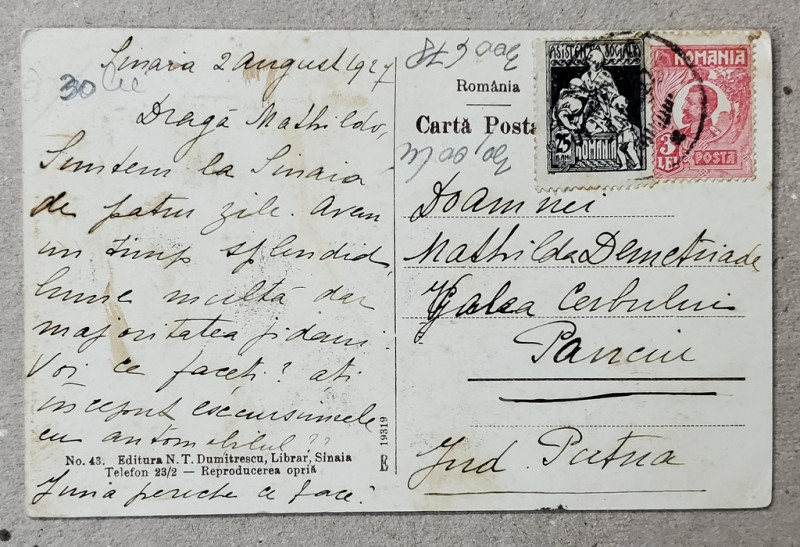 Sinaia 2 august 1927
30 lei
Dragă Mathildo,
Suntem la Sinaia
de patru zile. Avem
un timp splendid,
lume multă dar
majoritatea jidani.
Voi ce faceți? ați
început escursiunele
cu automobilul??
No. 43. Editura N. T. Dumitrescu, Librar, Sinaia
Telefon 23/2 — Reproducerea oprită
ce face?
E 19319
România
Carta Posta
ASISTENȚA SOCIALĂ
25 BANI
ROMANIA
ROMANIA
3 LEI
POSTA
Doamnei
Mathilda Demetriade
Valea Cerbului
Panciu
Jud. Putna